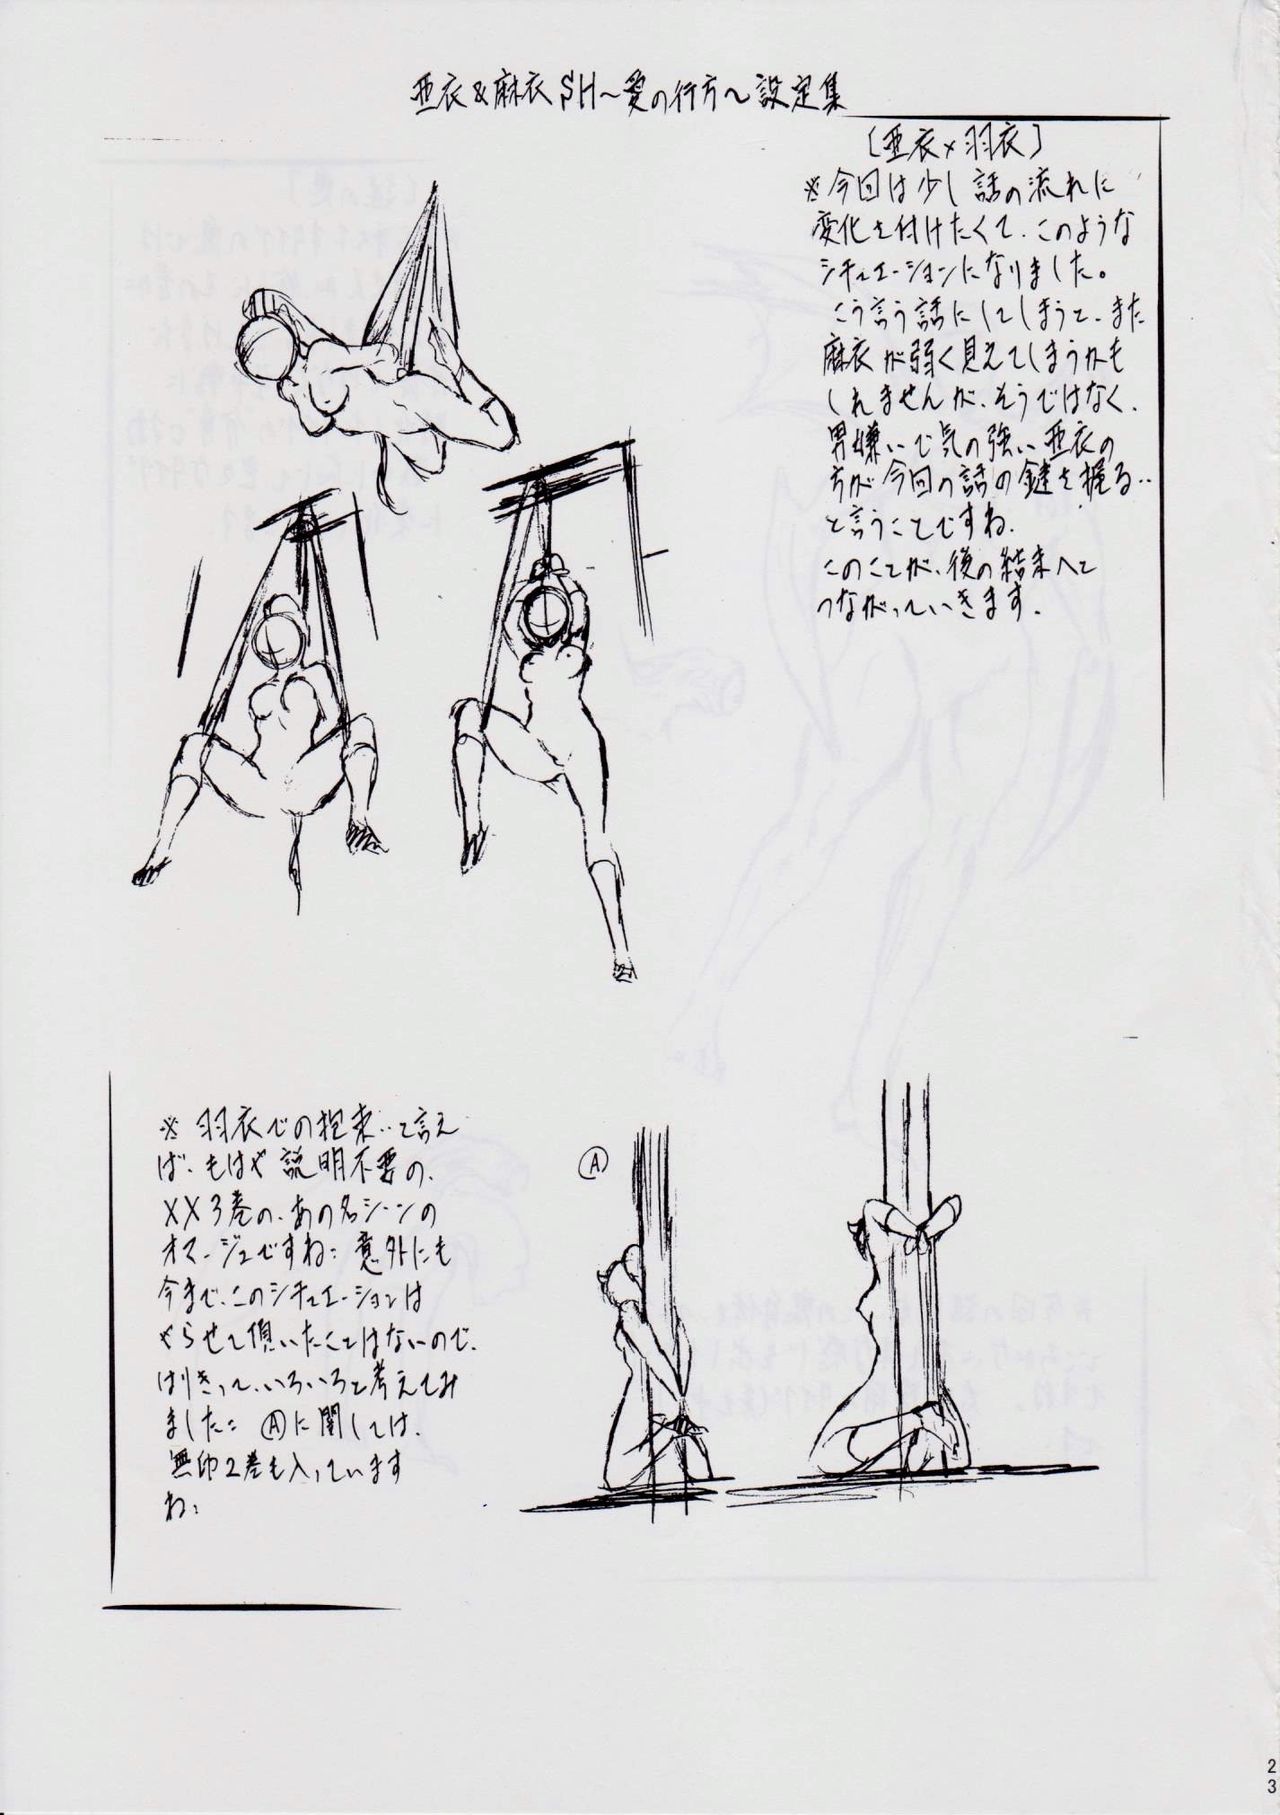 亜衣&麻衣SH〜愛の行方〜設定集
[亜衣×羽衣]
※今回は少し話の流れに
変化を付けたくて、このような
シチュエーションになりました。
こう言う話にしてしまうと、また
麻衣が弱く見えてしまうかも
しれませんが、そうではなく、
男嫌いで気の強い亜衣の
方が今回の話の鍵を握る‥
と言うことですね.
このことが、後の結末へと
つながっていきます.
※羽衣での拘束‥と言え
ば、もはや説明不要の、
XX3巻の、あの名シーンの
オマージュですね: 意外にも
今まで、このシチュエーションは
やらせて頂いたことはないので、
はりきって、いろいろと考えてみ
ました: Ⓐに関しては、
無印2巻も入っています
ね:
Ⓐ
23